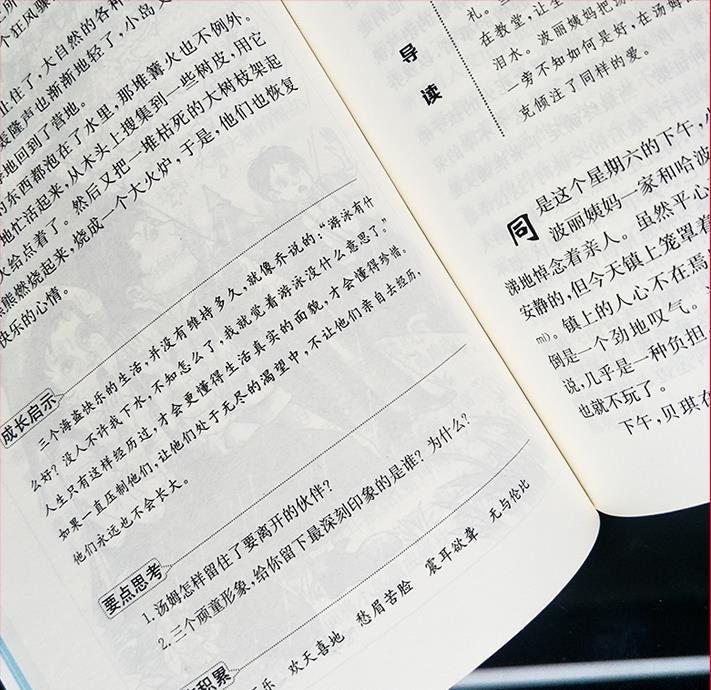 个狂风骤
止住了，大自然的各种
隆声也渐渐地轻了，小岛又
地回到了营地。
东西都泡在了水里，那堆篝火也不例外。
地忙活起来，从木头上搜集到一些树皮，用它
火给点着了。然后又把一堆枯死的大树枝架起
熊燃烧起来，烧成一个大火炉，于是，他们也恢复
快乐的心情。
成长启示
三个海盗快乐的生活，并没有维持多久，就像乔说的：“游泳有什
么好？没人不许我下水，不知怎么了，我就觉着游泳没什么意思了。”
人生只有这样经历过，才会更懂得生活真实的面貌，才会懂得珍惜。
如果一直压制他们，让他们处于无尽的渴望中，不让他们亲自去经历，
他们永远也不会长大。
要点思考
1. 汤姆怎样留住了要离开的伙伴？
2. 三个顽童形象，给你留下最深刻印象的是谁？为什么？
积累
乐 欢天喜地 愁眉苦脸 震耳欲聋 无与伦比
导读
礼。
在教堂，让全
泪水。波丽姨妈把汤
一旁不知如何是好，在汤姆
克倾注了同样的爱。
同是这个星期六的下午，小
波丽姨妈一家和哈波
地悼念着亲人。虽然平心
安静的，但今天镇上笼罩着
mì)。镇上的人心不在焉
倒是一个劲地叹气。
说，几乎是一种负担
也就不玩了。
下午，贝琪在